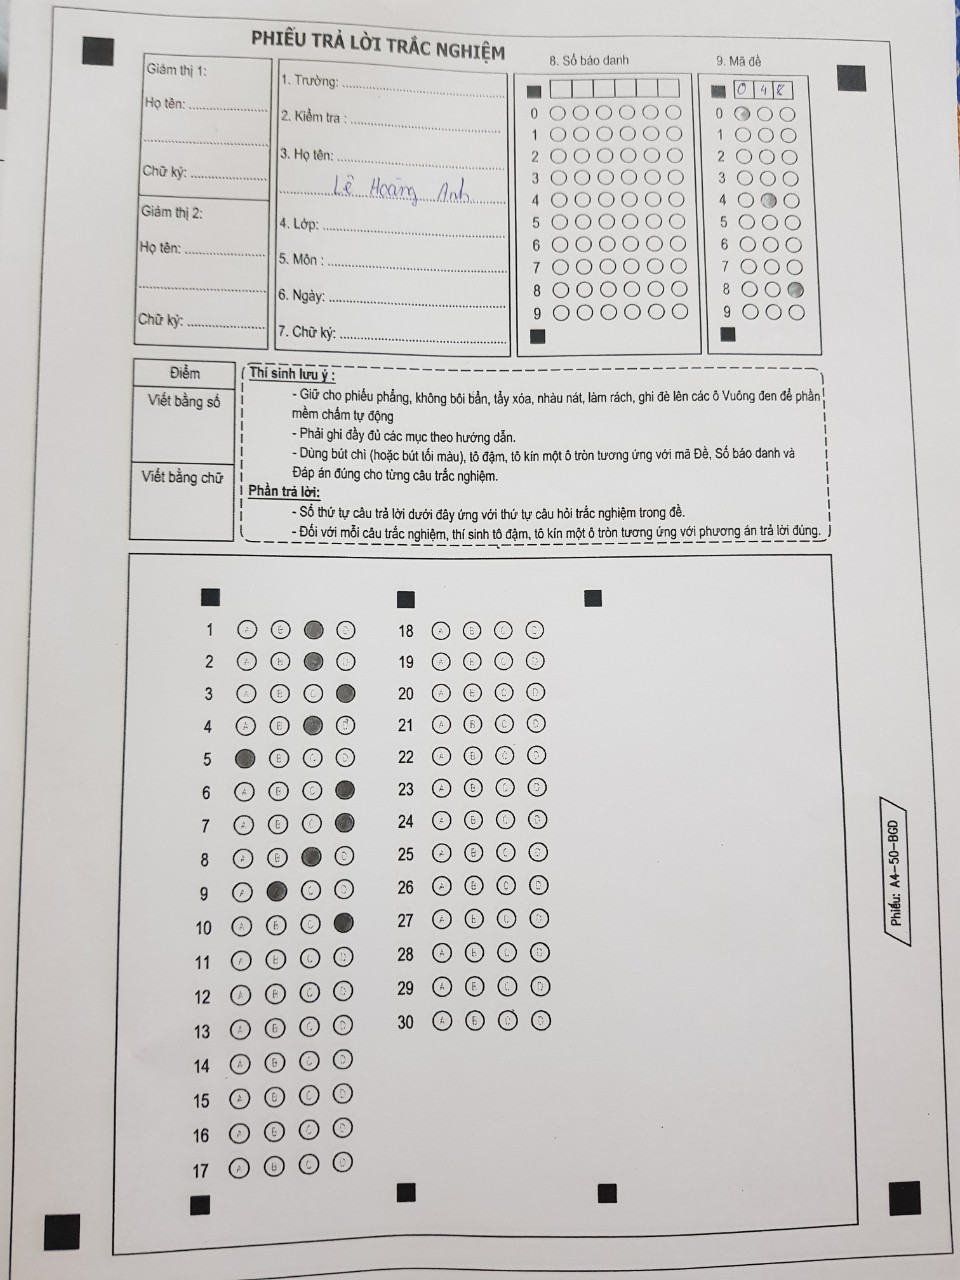 PHIẾU TRẢ LỜI TRẮC NGHIỆM
Giám thị 1:
Họ tên:
Chữ ký:
Giám thị 2:
Họ tên:
Chữ ký:
1. Trường:
2. Kiểm tra :
3. Họ tên:
Lê Hoàng Anh
4. Lớp:
5. Môn :
6. Ngày:
7. Chữ ký:
8. Số báo danh
0
1
2
3
4
5
6
7
8
9
9. Mã đề
0 4 8
0
1
2
3
4
5
6
7
8
9
Điểm
Viết bằng số
Viết bằng chữ
Thí sinh lưu ý :
- Giữ cho phiếu phẳng, không bôi bẩn, tẩy xóa, nhàu nát, làm rách, ghi đè lên các ô Vuông đen để phần
mềm chấm tự động
- Phải ghi đầy đủ các mục theo hướng dẫn.
- Dùng bút chì (hoặc bút tối màu), tô đậm, tô kín một ô tròn tương ứng với mã Đề, Số báo danh và
Đáp án đúng cho từng câu trắc nghiệm.
Phần trả lời:
- Số thứ tự câu trả lời dưới đây ứng với thứ tự câu hỏi trắc nghiệm trong đề.
- Đối với mỗi câu trắc nghiệm, thí sinh tô đậm, tô kín một ô tròn tương ứng với phương án trả lời đúng.
1 A B D
2 A B D
3 A B C
4 A B C
5 B C D
6 A B C
7 A B C
8 A B D
9 A C D
10 A B C
11 A B C D
12 A B C D
13 A B C D
14 A B C D
15 A B C D
16 A B C D
17 A B C D
18 A B C D
19 A B C D
20 A B C D
21 A B C D
22 A B C D
23 A B C D
24 A B C D
25 A B C D
26 A B C D
27 A B C D
28 A B C D
29 A B C D
30 A B C D
Phiếu: A4-50-BGD